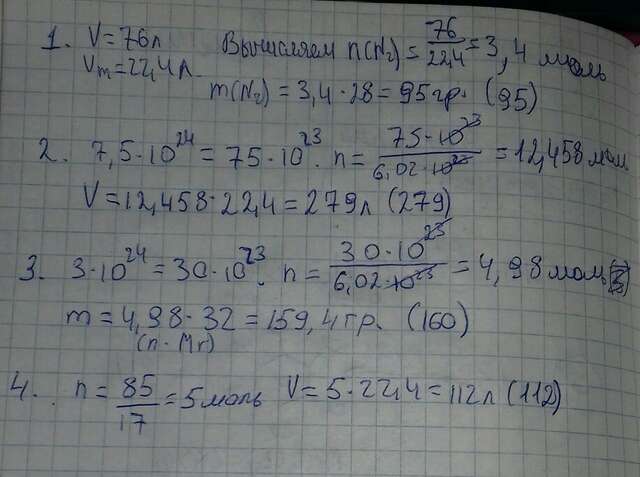 1. V=76л Вычисляем n(N₂)=76/22,4=3,4 моль
Vm=22,4л.
m(N₂)=3,4·28=95гр. (95)
2. 7,5·10²⁴=75·10²³. n=75·10²³/6,02·10²³=12,458 мол
V=12,458·22,4=279л (279)
3. 3·10²⁴=30·10²³. n=30·10²³/6,02·10²³=4,98 моль
m=4,98·32=159,4гр. (160)
(n·Mr)
4. n=85/17=5моль V=5·22,4=112л (112)